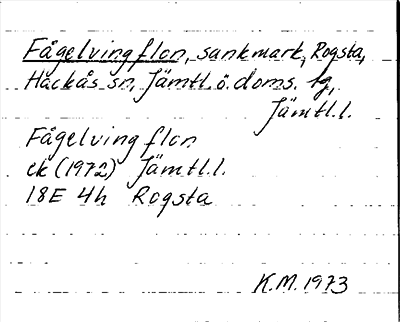 Fågelvingflon, sankmark, Rogsta,
Hackås sn, Jämtl. ö. doms. tg,
Jämtl.l.
Fågelvingflon
ek (1972) Jämtl.l.
18E 4h Rogsta
K.M. 1973